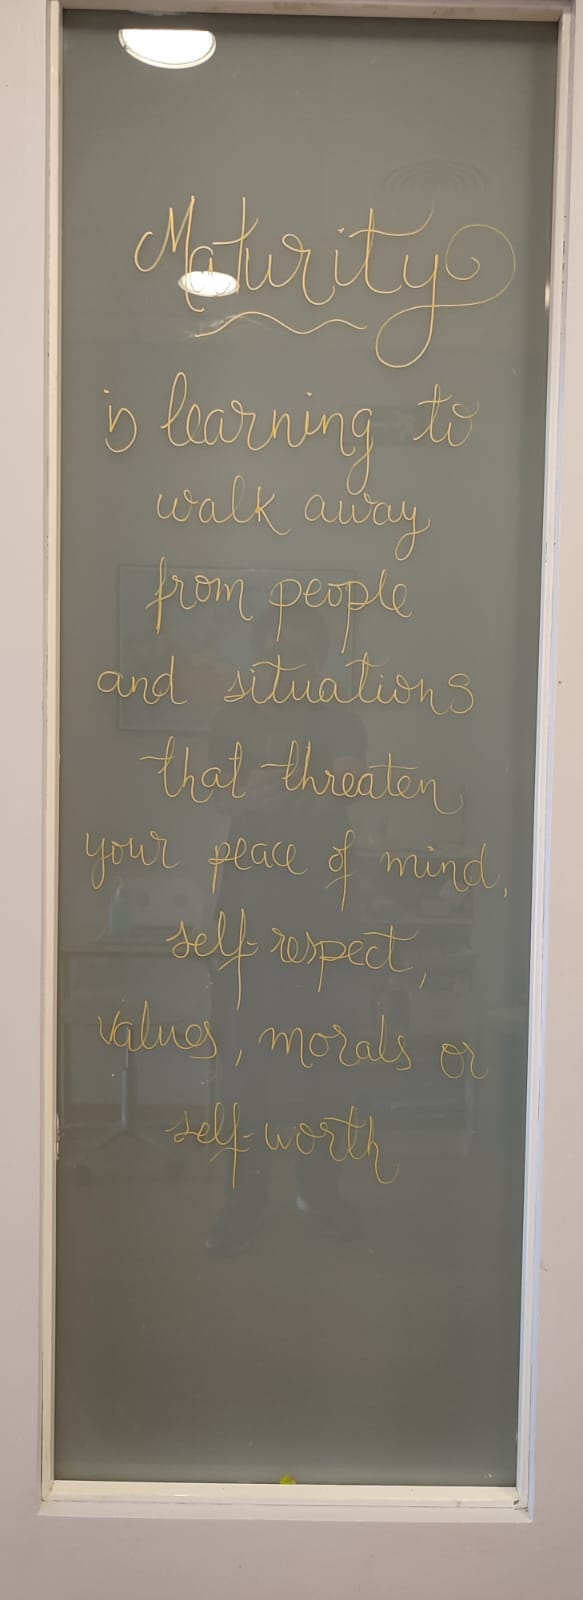 Maturity
is learning to
walk away
from people
and situations
that threaten
your peace of mind,
self-respect,
values, morals or
self-worth